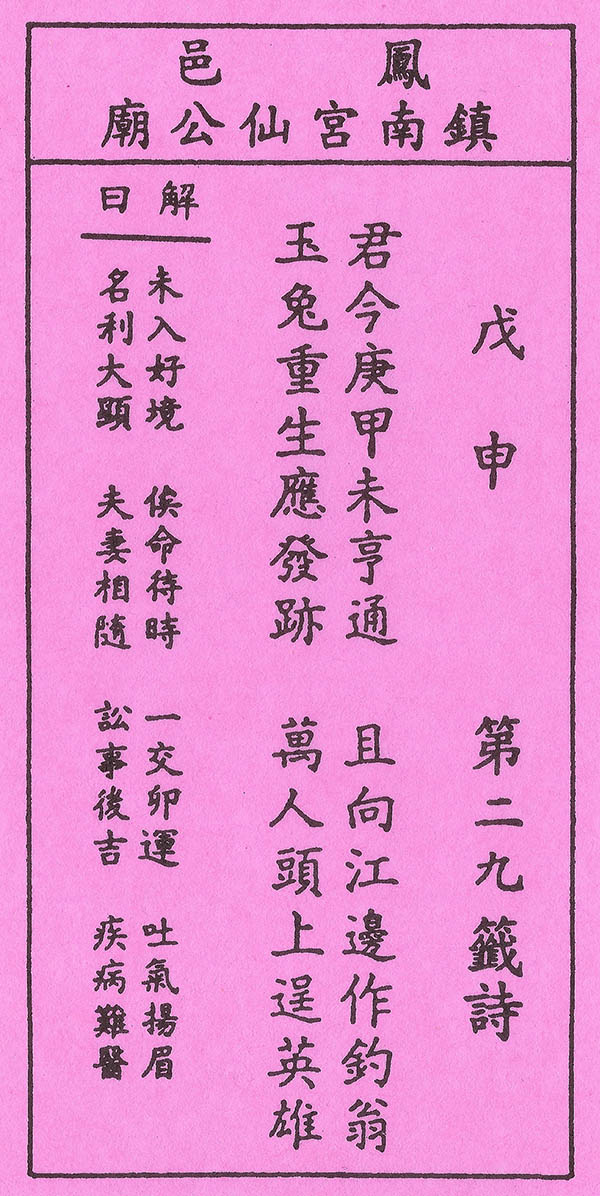 鳳邑
鎮南宮仙公廟
戊申 第二九籤詩
君今庚甲未亨通 且向江邊作釣翁
玉兔重生應發跡 萬人頭上逞英雄
解曰
未入好境 俟命待時 一交卯運 吐氣揚眉
名利大顯 夫妻相隨 訟事後吉 疾病難醫